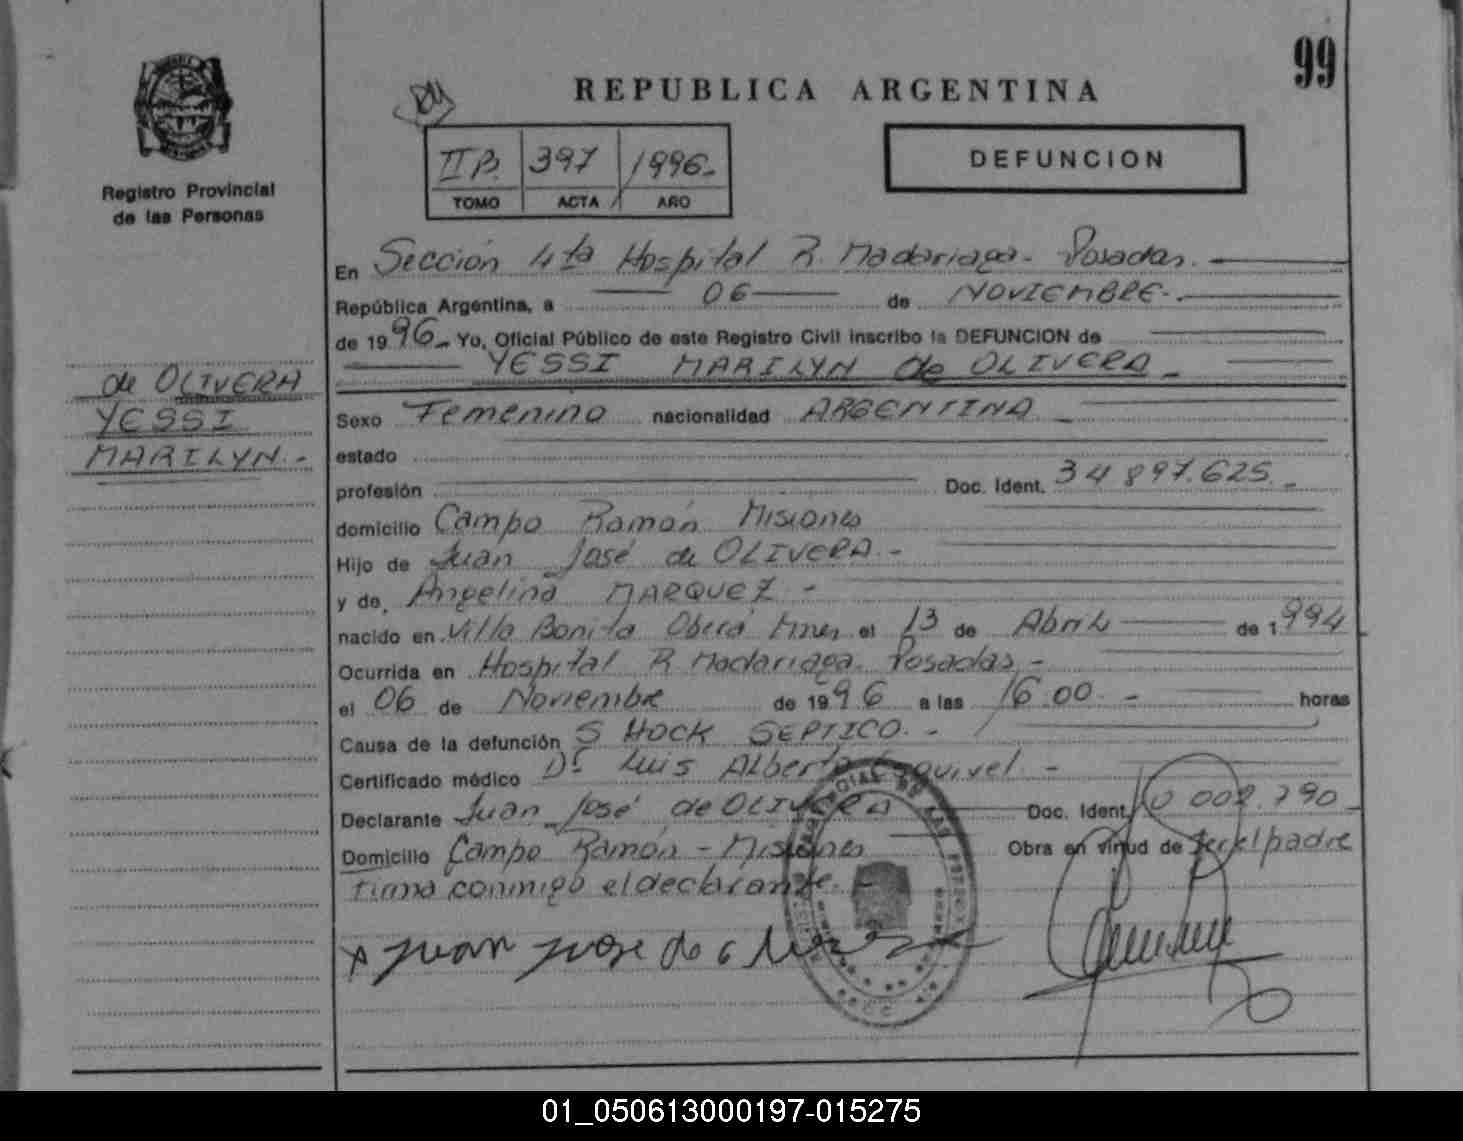 99
REPUBLICA ARGENTINA
Registro Provincial
de las Personas
IIB. 397 1996.-
TOMO ACTA AÑO
DEFUNCION
En Sección 4ta Hospital R. Madariaga - Posadas.
República Argentina, a 06 de NOVIEMBRE.-
de 1996.- Yo, Oficial Público de este Registro Civil inscribo la DEFUNCION de
YESSI MARILYN de OLIVERA.-
de OLIVERA
YESSI
MARILYN.-
Sexo Femenino nacionalidad ARGENTINA.-
estado
profesión Doc. Ident. 34 897.625.-
domicilio Campo Ramón Misiones
Hijo de Juan José de OLIVERA.-
y de Angelina MARQUEZ.-
nacido en Villa Bonita Oberá Mnes el 13 de Abril de 1994
Ocurrida en Hospital R. Madariaga. Posadas.-
el 06 de Noviembre de 1996 a las 16.00.- horas
Causa de la defunción SHOCK SEPTICO.-
Certificado médico Dr. Luis Alberto Esquivel.-
Declarante Juan José de OLIVERA Doc. Ident. 10 002.790.-
Domicilio Campo Ramón - Misiones Obra en virtud de ser el padre
firma conmigo el declarante.-
x Juan Jose de Olivera
01_050613000197-015275